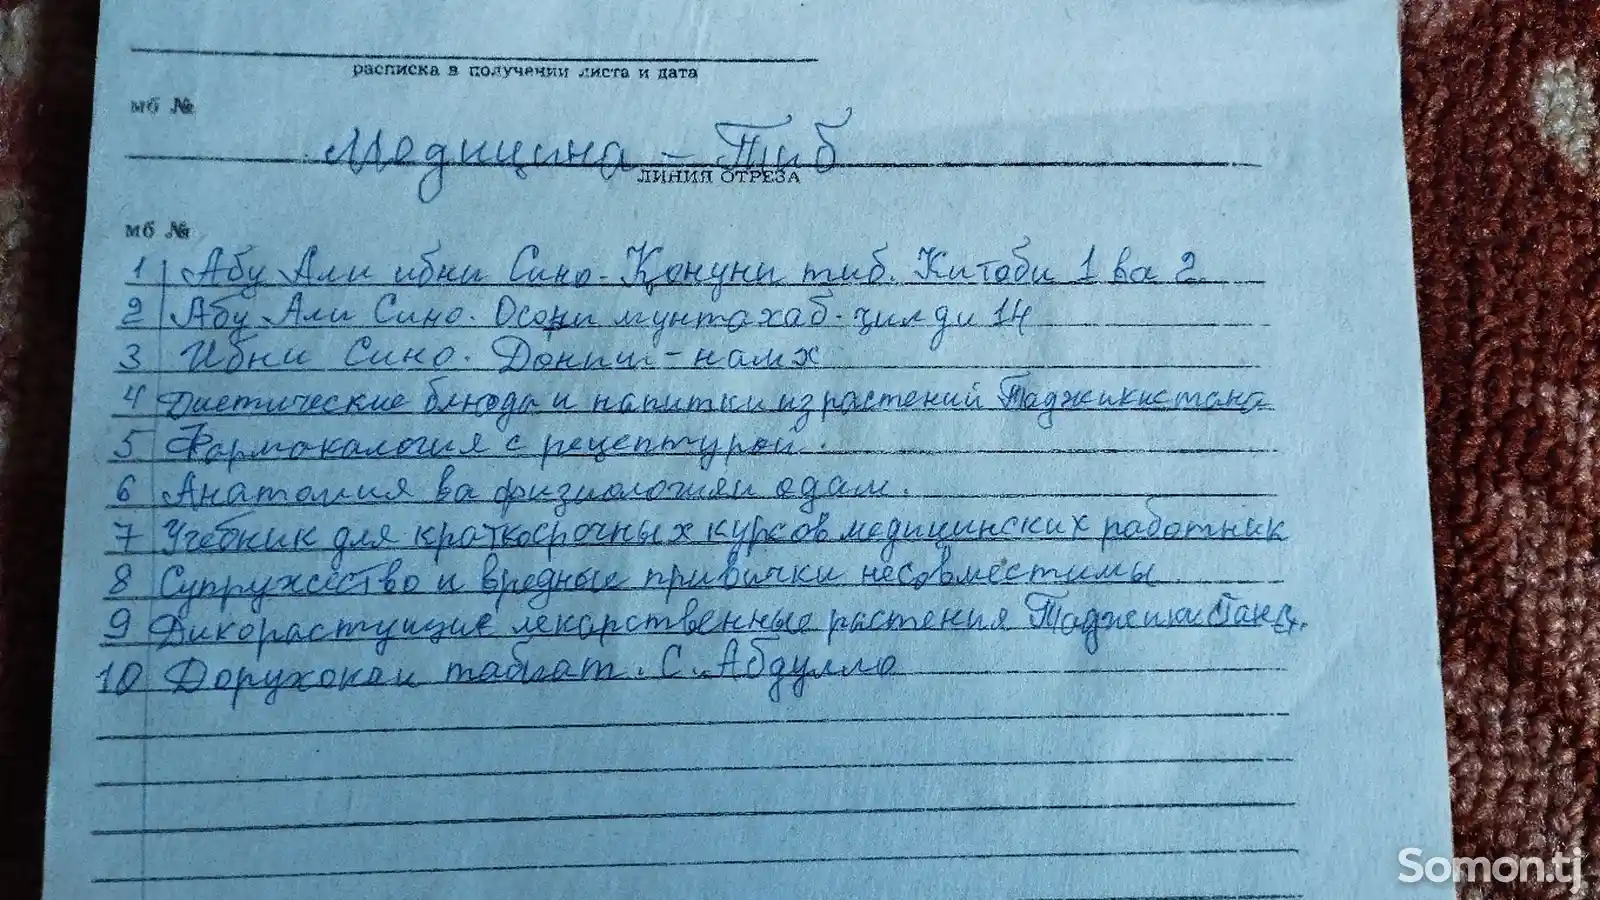 расписка в получении листа и дата
мб №
Медицина - Тиб
ЛИНИЯ ОТРЕЗА
мб №
1 Абу Али ибни Сино - Қонуни тиб. Китоби 1 ва 2
2 Абу Али Сино. Осори мунтахаб. ҷилди 14
3 Ибни Сино. Дониш-намх
4 Диетические блюда и напитки из растений Таджикистана
5 Фармокалогия с рецептурой.
6 Анатомия ва физиологияи одам.
7 Учебник для краткосрочных курсов медицинских работник
8 Супружество и вредные привички несовместимы
9 Дикорастущие лекарственные растения Таджикистана.
10 Дорухонаи табиат. С. Абдулло
Somon.tj